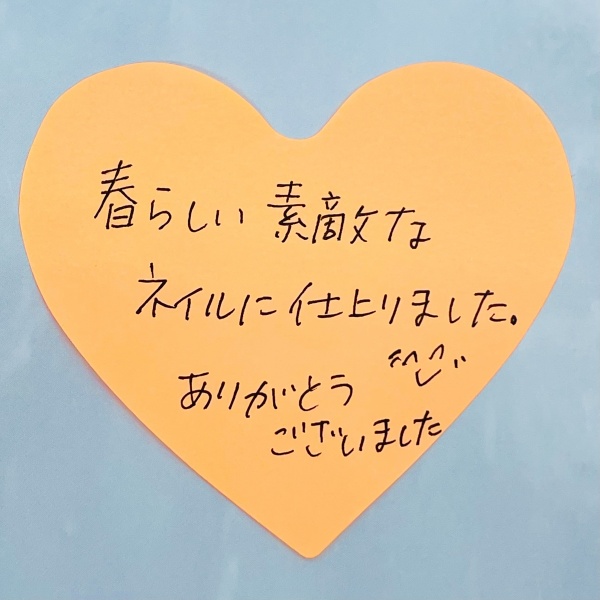 春らしい素敵な
ネイルに仕上りました。
ありがとう
ございました